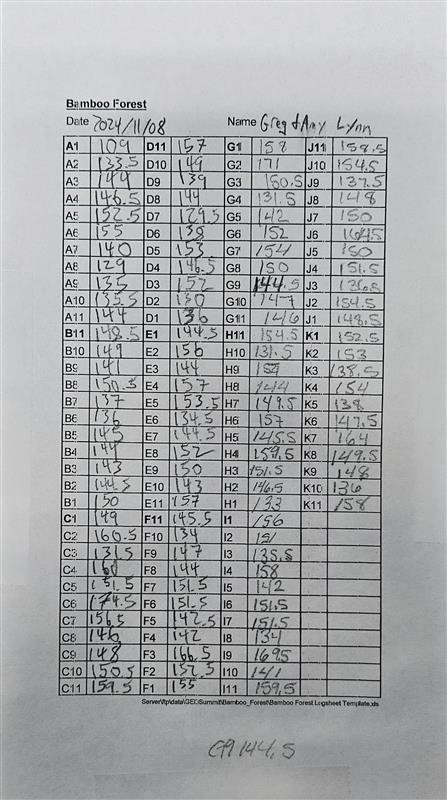 Bamboo Forest
Date 2024/11/08 Name Greg & Amy Lynn
A1 109 D11 157 G1 158 J11 158.5
A2 133.5 D10 149 G2 171 J10 154.5
A3 144 D9 139 G3 150.5 J9 137.5
A4 146.5 D8 144 G4 131.5 J8 148
A5 152.5 D7 129.5 G5 142 J7 150
A6 155 D6 138 G6 152 J6 164.5
A7 140 D5 153 G7 154 J5 150
A8 129 D4 146.5 G8 150 J4 151.5
A9 135 D3 152 G9 144.5 J3 136.5
A10 135.5 D2 130 G10 147 J2 154.5
A11 144 D1 136 G11 146 J1 148.5
B11 148.5 E1 144.5 H11 154.5 K1 152.5
B10 149 E2 156 H10 131.5 K2 153
B9 141 E3 144 H9 K3 138.5
B8 150.5 E4 157 H8 144 K4 154
B7 137 E5 153.5 H7 149.5 K5 138
B6 136 E6 134.5 H6 157 K6 147.5
B5 145 E7 144.5 H5 145.5 K7 164
B4 144 E8 152 H4 159.5 K8 149.5
B3 143 E9 150 H3 151.5 K9 148
B2 144.5 E10 143 H2 146.5 K10 136
B1 150 E11 157 H1 133 K11 158
C1 149 F11 145.5 I1 156
C2 160.5 F10 134 I2 151
C3 131.5 F9 147 I3 135.5
C4 160 F8 144 I4 158
C5 151.5 F7 151.5 I5 142
C6 174.5 F6 151.5 I6 151.5
C7 156.5 F5 142.5 I7 151.5
C8 146 F4 142 I8 134
C9 148 F3 166.5 I9 169.5
C10 150.5 F2 152.5 I10 141
C11 159.5 F1 155 I11 159.5
Server\ftp\data\GEOSummit\Bamboo_Forest\Bamboo Forest Logsheet Template.xls
G9 144.5